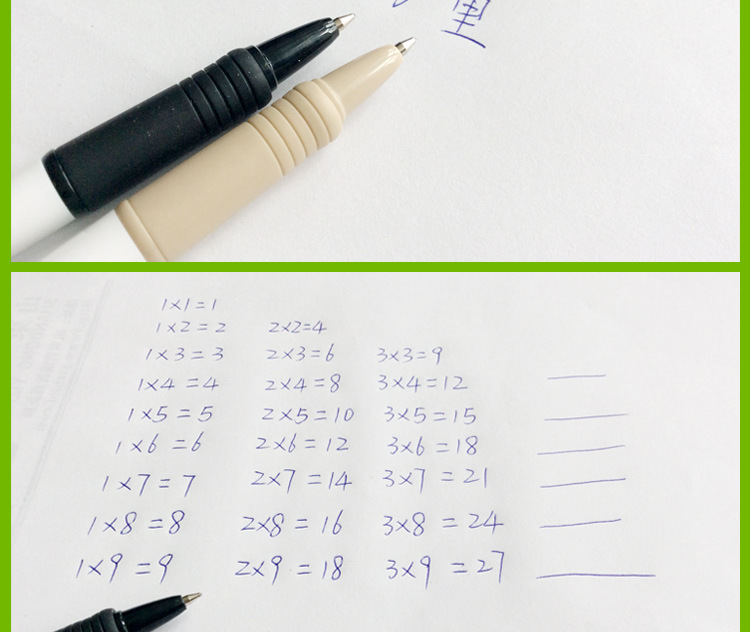 里
1×1=1
1×2=2 2×2=4
1×3=3 2×3=6 3×3=9
1×4=4 2×4=8 3×4=12
1×5=5 2×5=10 3×5=15
1×6=6 2×6=12 3×6=18
1×7=7 2×7=14 3×7=21
1×8=8 2×8=16 3×8=24
1×9=9 2×9=18 3×9=27